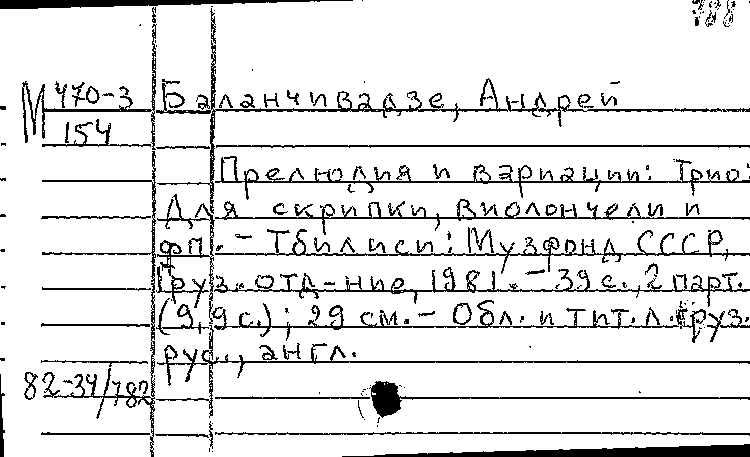 788
М 470-3
154
Баланчивадзе, Андрей
Прелюдия и вариации: Трио:
Для скрипки, виолончели и
фп. - Тбилиси: Музфонд СССР,
Груз. отд-ние, 1981. - 39 с., 2 парт.
(9, 9 с.); 29 см. - Обл. и тит. л. груз.
рус., англ.
82-34/782